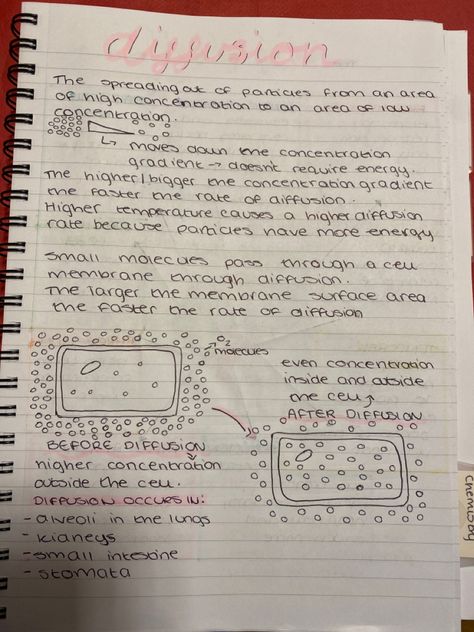 diffusion
The spreading out of particles from an area
of high concentration to an area of low
concentration.
↳ moves down the concentration
gradient → doesnt require energy.
The higher/bigger the concentration gradient
the faster the rate of diffusion.
Higher temperature causes a higher diffusion
rate because particles have more energy
small molecues pass through a cell
membrane through diffusion.
The larger the membrane surface area
the faster the rate of diffusion
O2
molecues
even concentration
inside and outside
the cell
AFTER DIFFUSION
BEFORE DIFFUSION
higher concentration
outside the cell.
DIFFUSION OCCURS IN:
- alveoli in the lungs
- kidneys
- small intestine
- stomata
chemistry